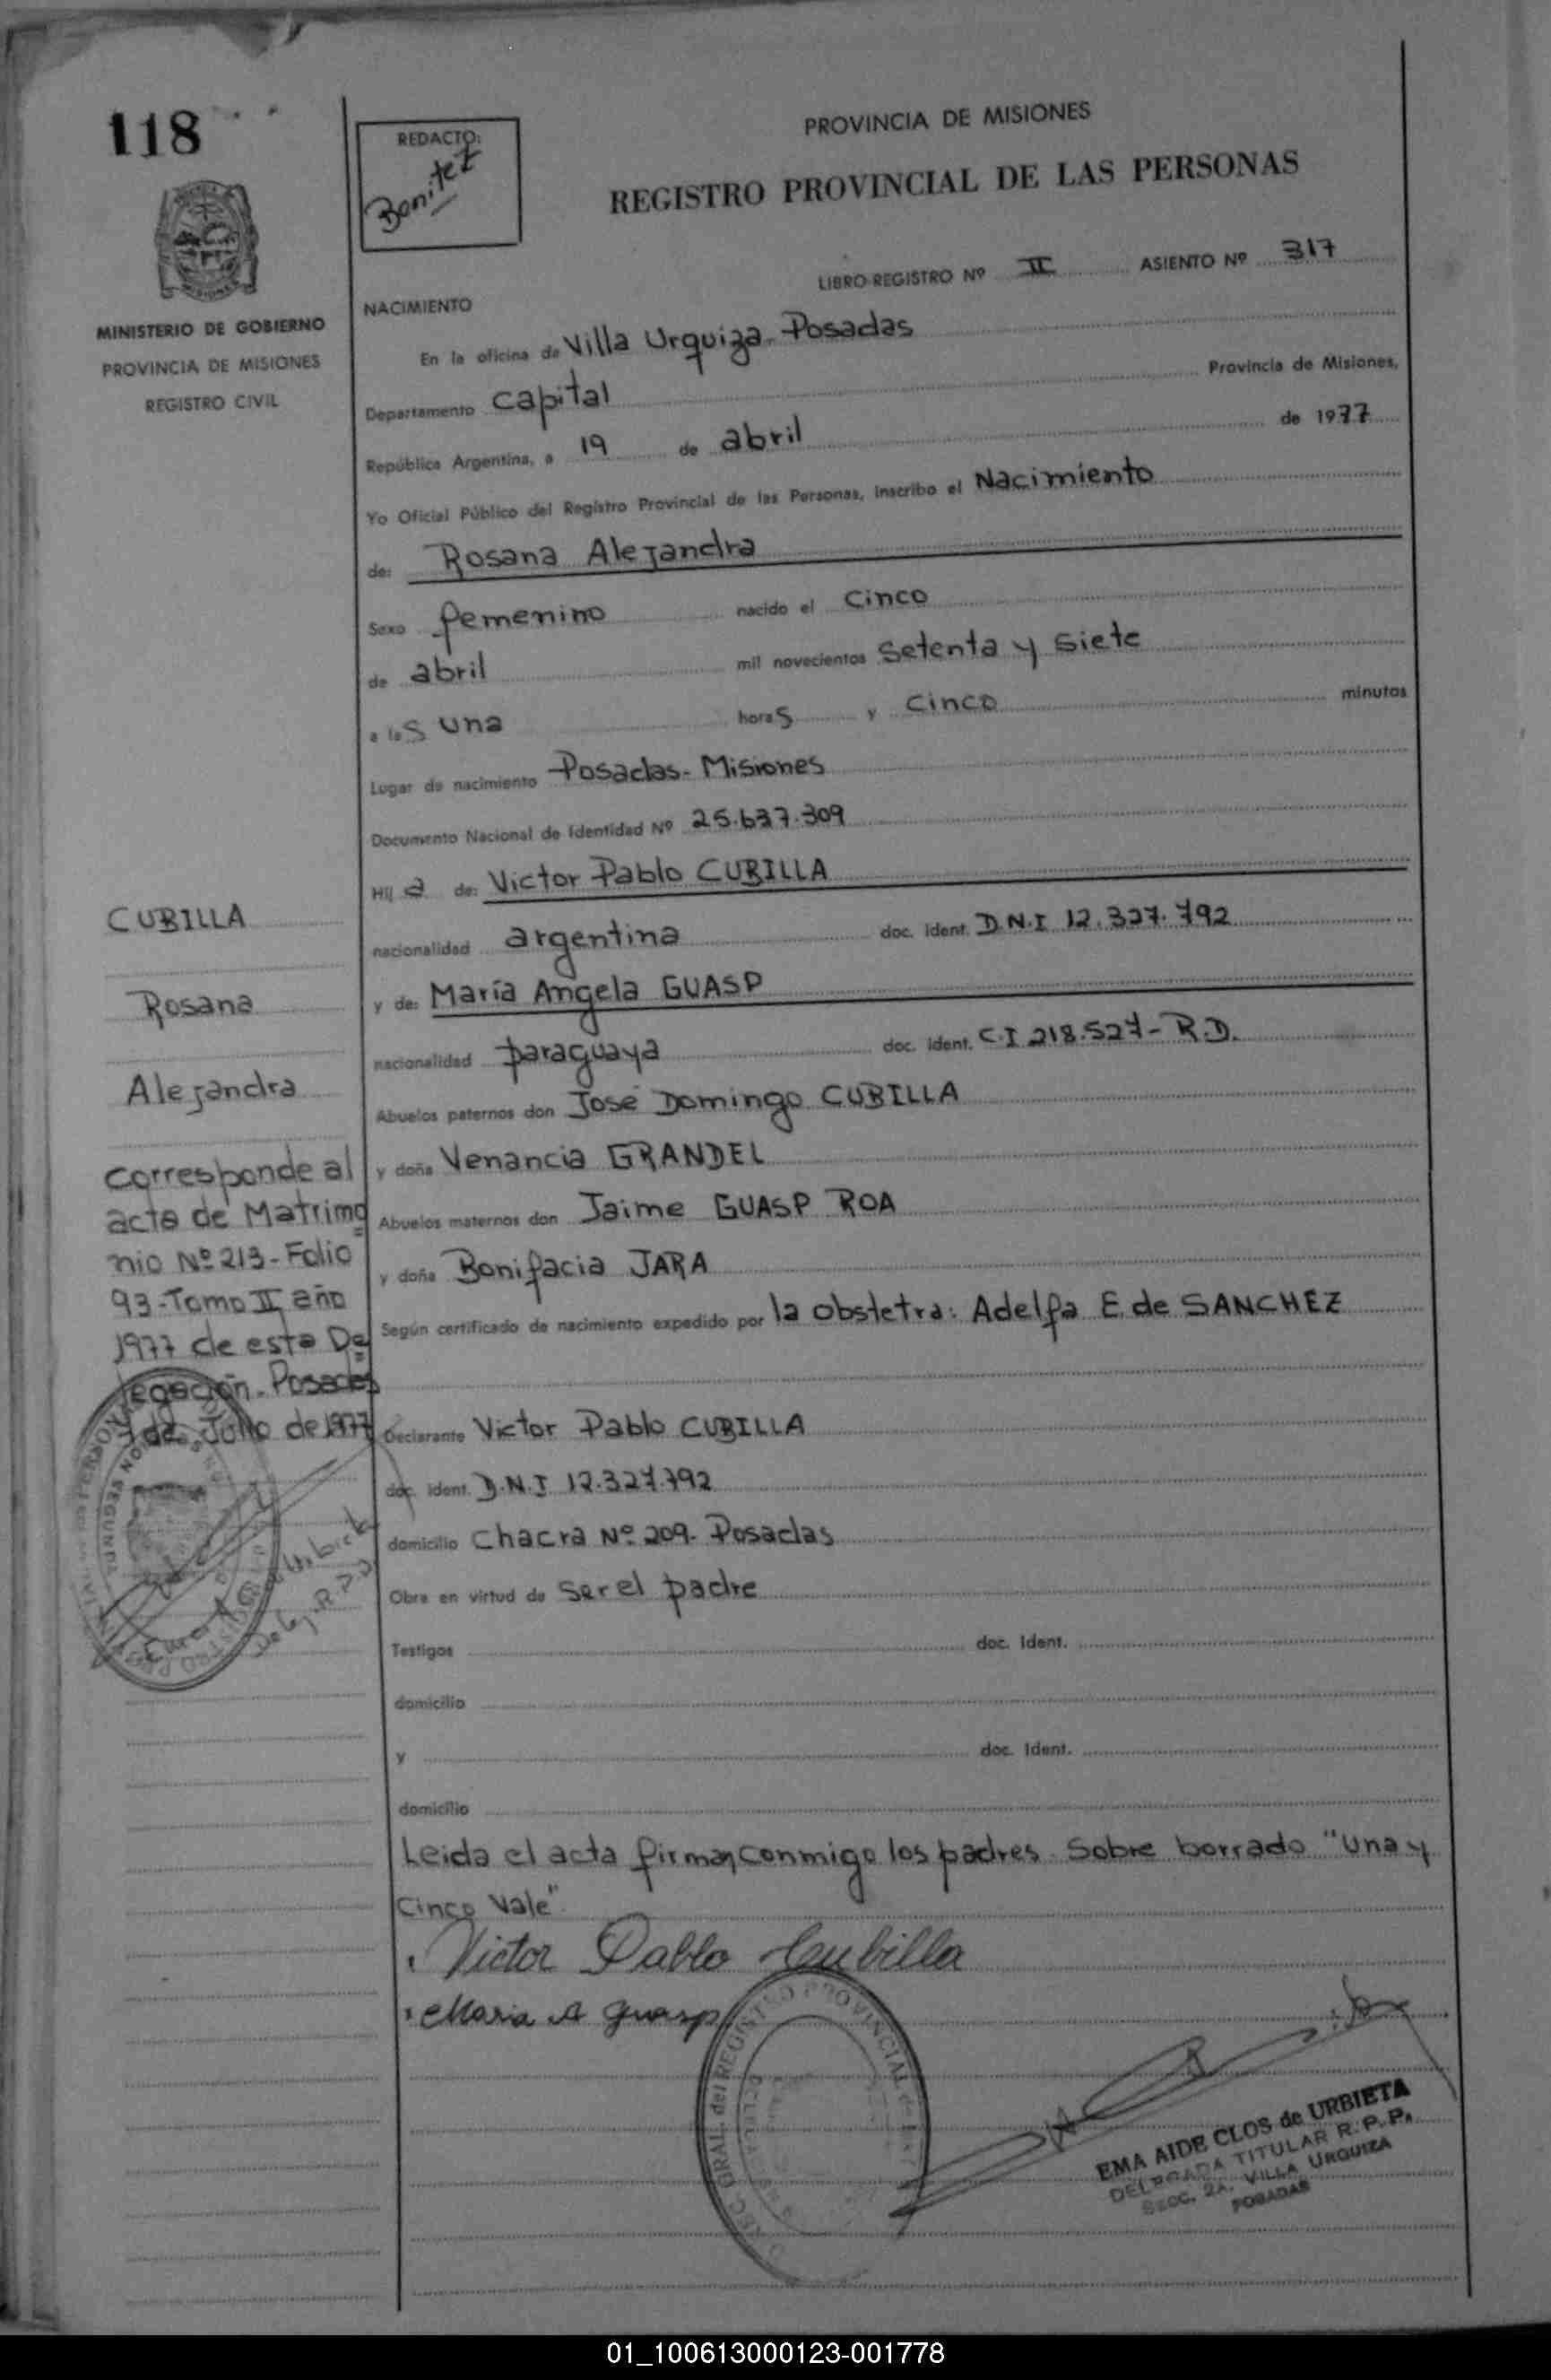 118
REDACTO:
Benitez
PROVINCIA DE MISIONES
REGISTRO PROVINCIAL DE LAS PERSONAS
LIBRO-REGISTRO Nº II ASIENTO Nº 317
MINISTERIO DE GOBIERNO
PROVINCIA DE MISIONES
REGISTRO CIVIL
NACIMIENTO
En la oficina de Villa Urquiza-Posadas
Departamento Capital Provincia de Misiones,
República Argentina, a 19 de abril de 1977
Yo Oficial Público del Registro Provincial de las Personas, inscribo el Nacimiento
de: Rosana Alejandra
Sexo femenino nacido el Cinco
de abril mil novecientos Setenta y siete
a las una horas y cinco minutos
Lugar de nacimiento Posadas-Misiones
Documento Nacional de Identidad Nº 25.637.309
Hija de: Victor Pablo CUBILLA
nacionalidad argentina doc. ident. D.N.I 12.327.792
y de: María Angela GUASP
nacionalidad paraguaya doc. ident. C.I 218.527-R.D.
Abuelos paternos don José Domingo CUBILLA
y doña Venancia GRANDEL
Abuelos maternos don Jaime GUASP ROA
y doña Bonifacia JARA
Según certificado de nacimiento expedido por la obstetra: Adelfa E. de SANCHEZ
Declarante Victor Pablo CUBILLA
doc. ident. D.N.I 12.327.792
domicilio Chacra Nº 209-Posadas
Obra en virtud de ser el padre
Testigos doc. Ident.
domicilio
y doc. Ident.
domicilio
Leida el acta firman conmigo los padres. Sobre borrado "una y
Cinco Vale"
Victor Pablo Cubilla
Maria A Guasp
CUBILLA
Rosana
Alejandra
Corresponde al
acta de Matrimo
nio Nº 213-Folio
93-Tomo II año
1977 de esta De
legación-Posadas
de Julio de 1977
EMA AIDE CLOS de URBIETA
DELEGADA TITULAR R. P. P.
SECC. 2A. VILLA URQUIZA
POSADAS
01_100613000123-001778